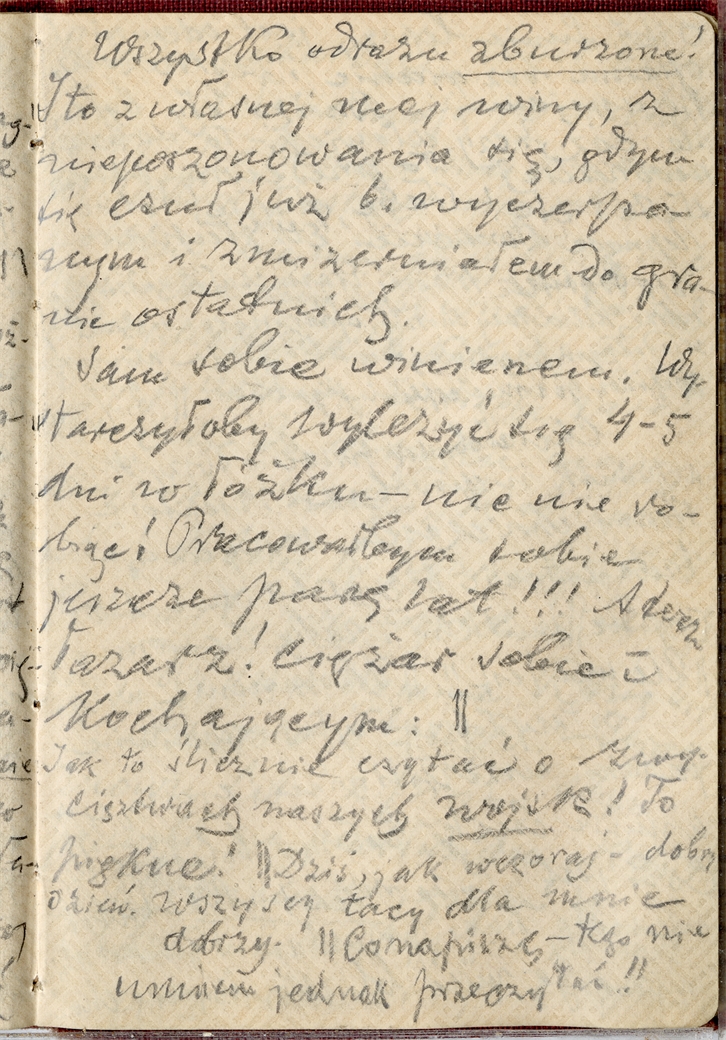 Wszystko odrazu zburzone!
I to z własnej mej winy, z
nieposzonowania się, gdym
się czuł już b. wyczerpa-
nym i zmizerniałem do gra-
nic ostatnich.
Sam sobie winienem. Wy-
starczyłoby wyleżyć się 4-5
dni w łóżku – nic nie ro-
biąc! Pracowałbym sobie
jeszcze parę lat!!! A teraz
Łazarz! Ciężar sobie i
Kochającym: ||
Jak to ślicznie czytać o zwy-
cięstwach naszych wojsk! To
piękne! || Dziś, jak wczoraj – dobry
dzień. Wszyscy tacy dla mnie
dobrzy. || Co napiszę – tego nie
umiem jednak przeczytać!!